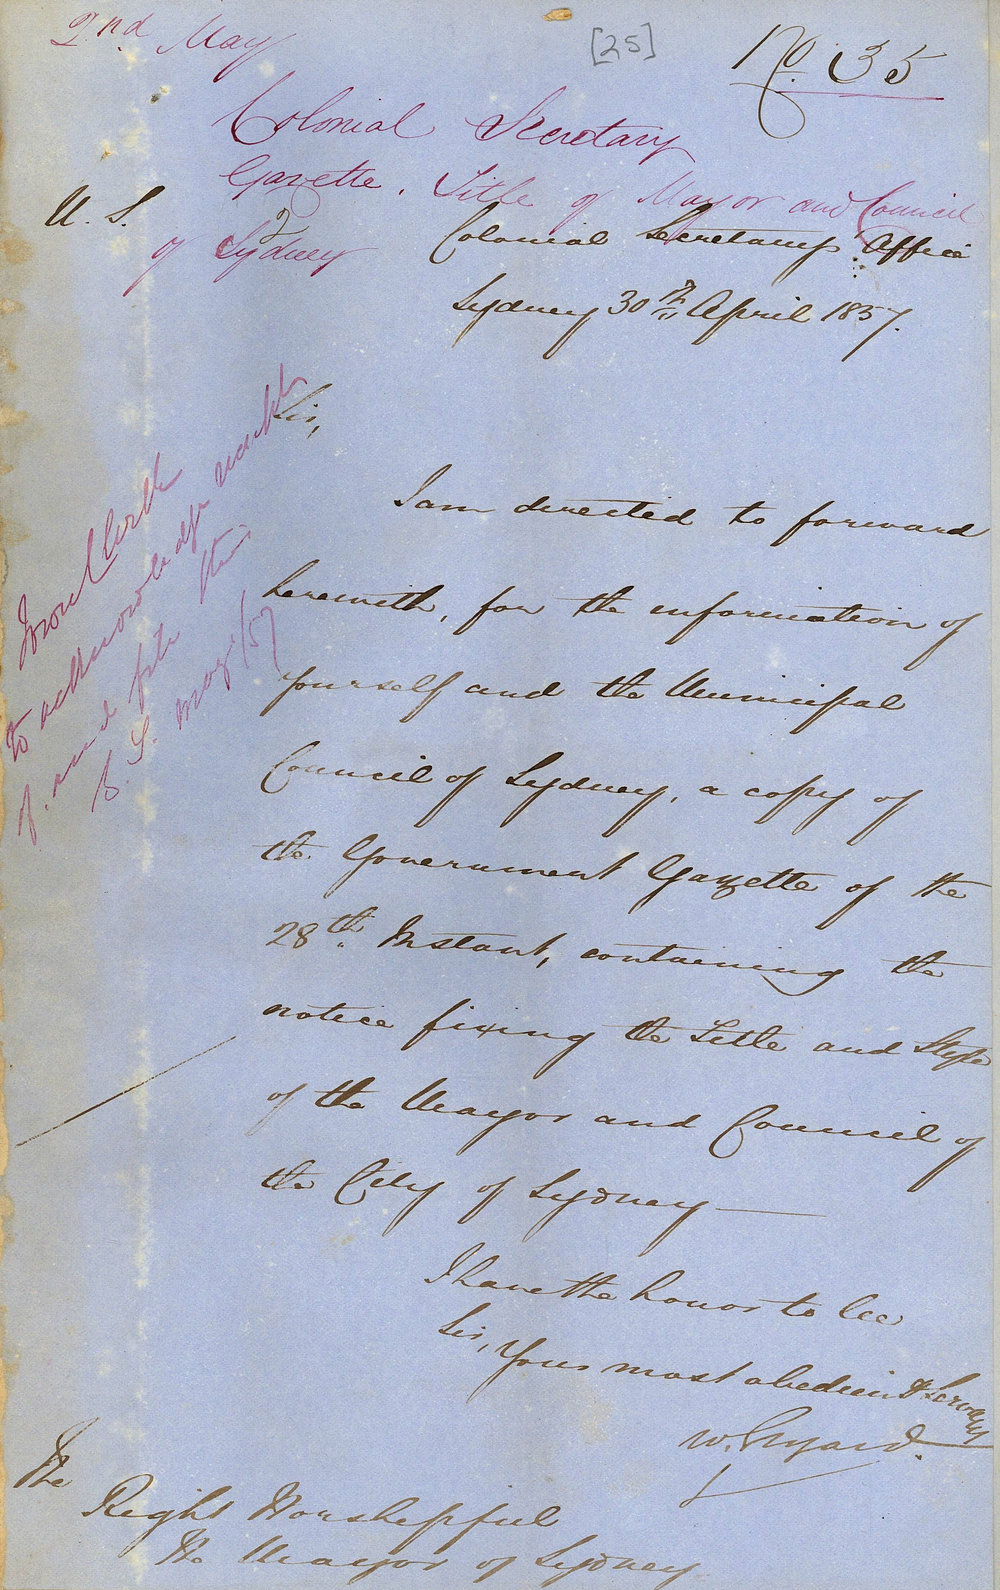 2nd May
[25]
No. 35
Colonial Secretary
Gazette. Title of Mayor and Council
of Sydney
U. S.
Colonial Secretary's Office
Sydney 30th April 1857.
Sir,
Town Clerk
to acknowledge receipt
of. and file this
May /57
I am directed to forward
herewith, for the information of
yourself and the Municipal
Council of Sydney, a copy of
the Government Gazette of the
28th Instant, containing the
notice fixing the Title and Style
of the Mayor and Council of
the City of Sydney
I have the honor to be
Sir, Your most obedient Servant
W. Elyard.
The
Right Worshipful
The Mayor of Sydney